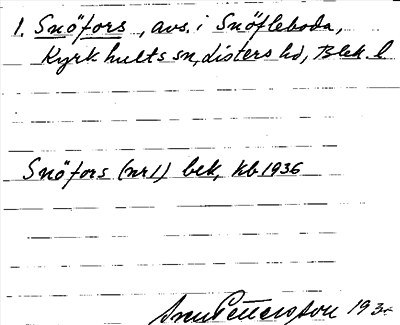 1. Snöfors, avs. i Snöfleboda,
Kyrkhults sn, Listers hd, Blek. l
Snöfors (nr 1) bek, kb 1936
Pettersson 193